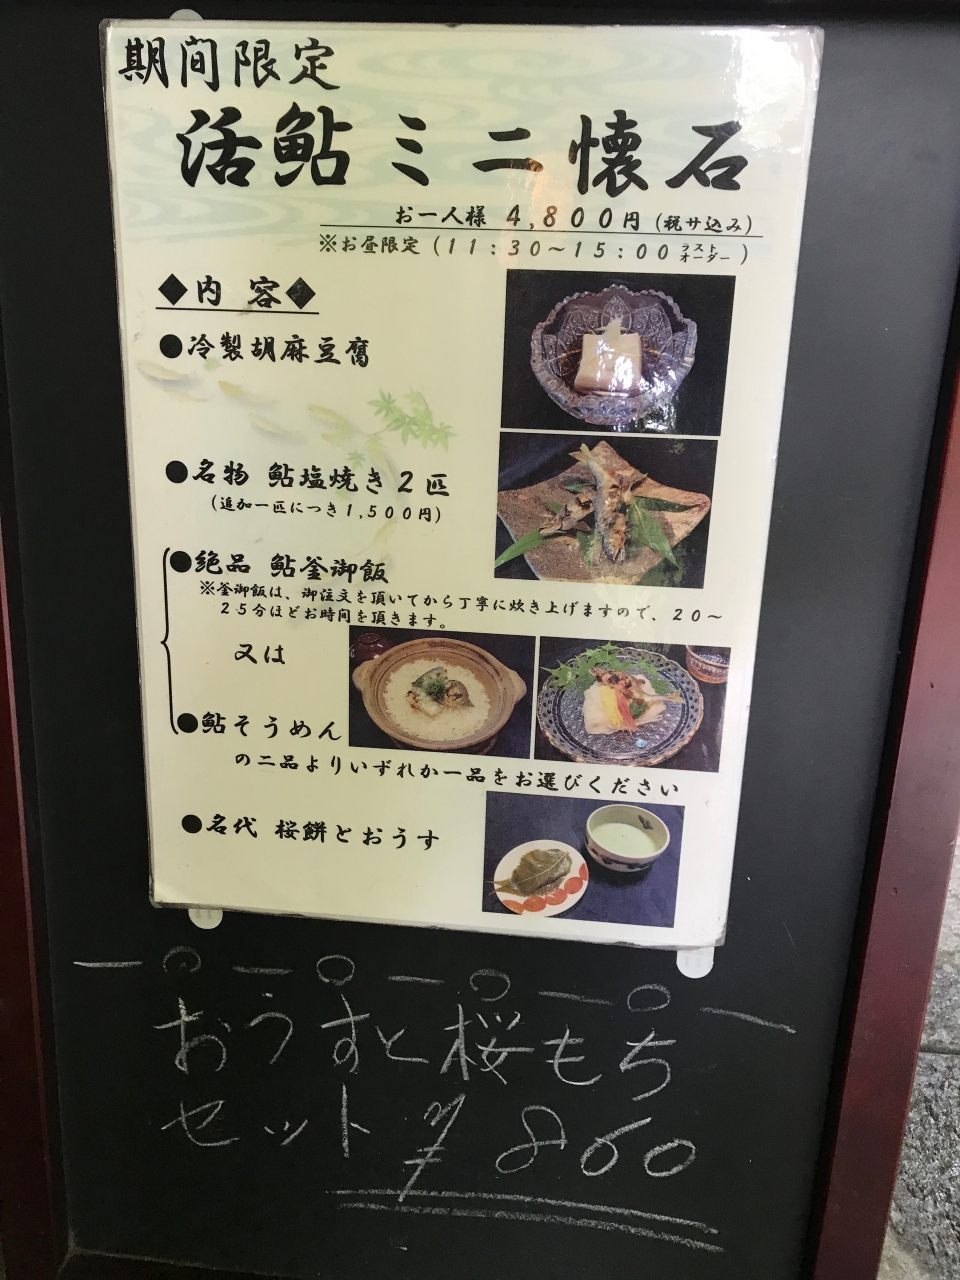 期間限定
活鮎ミニ懐石
お一人様 4,800円（税サ込み）
※お昼限定（11：30～15：00ラストオーダー）
◆内 容◆
●冷製胡麻豆腐
●名物 鮎塩焼き2匹
（追加一匹につき1,500円）
●絶品 鮎釜御飯
※釜御飯は、御注文を頂いてから丁寧に炊き上げますので、20～
25分ほどお時間を頂きます。
又は
●鮎そうめん
の二品よりいずれか一品をお選びください
●名代 桜餅とおうす
おうすと桜もち
セット ¥860